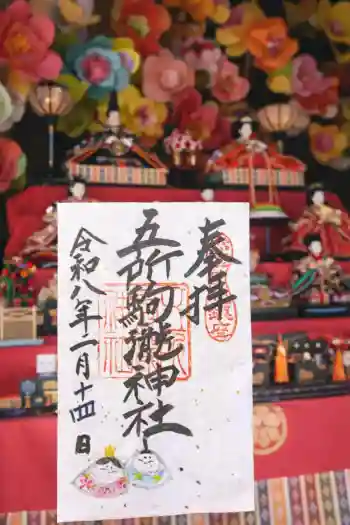 奉拝
五所駒瀧神社
令和八年二月十四日